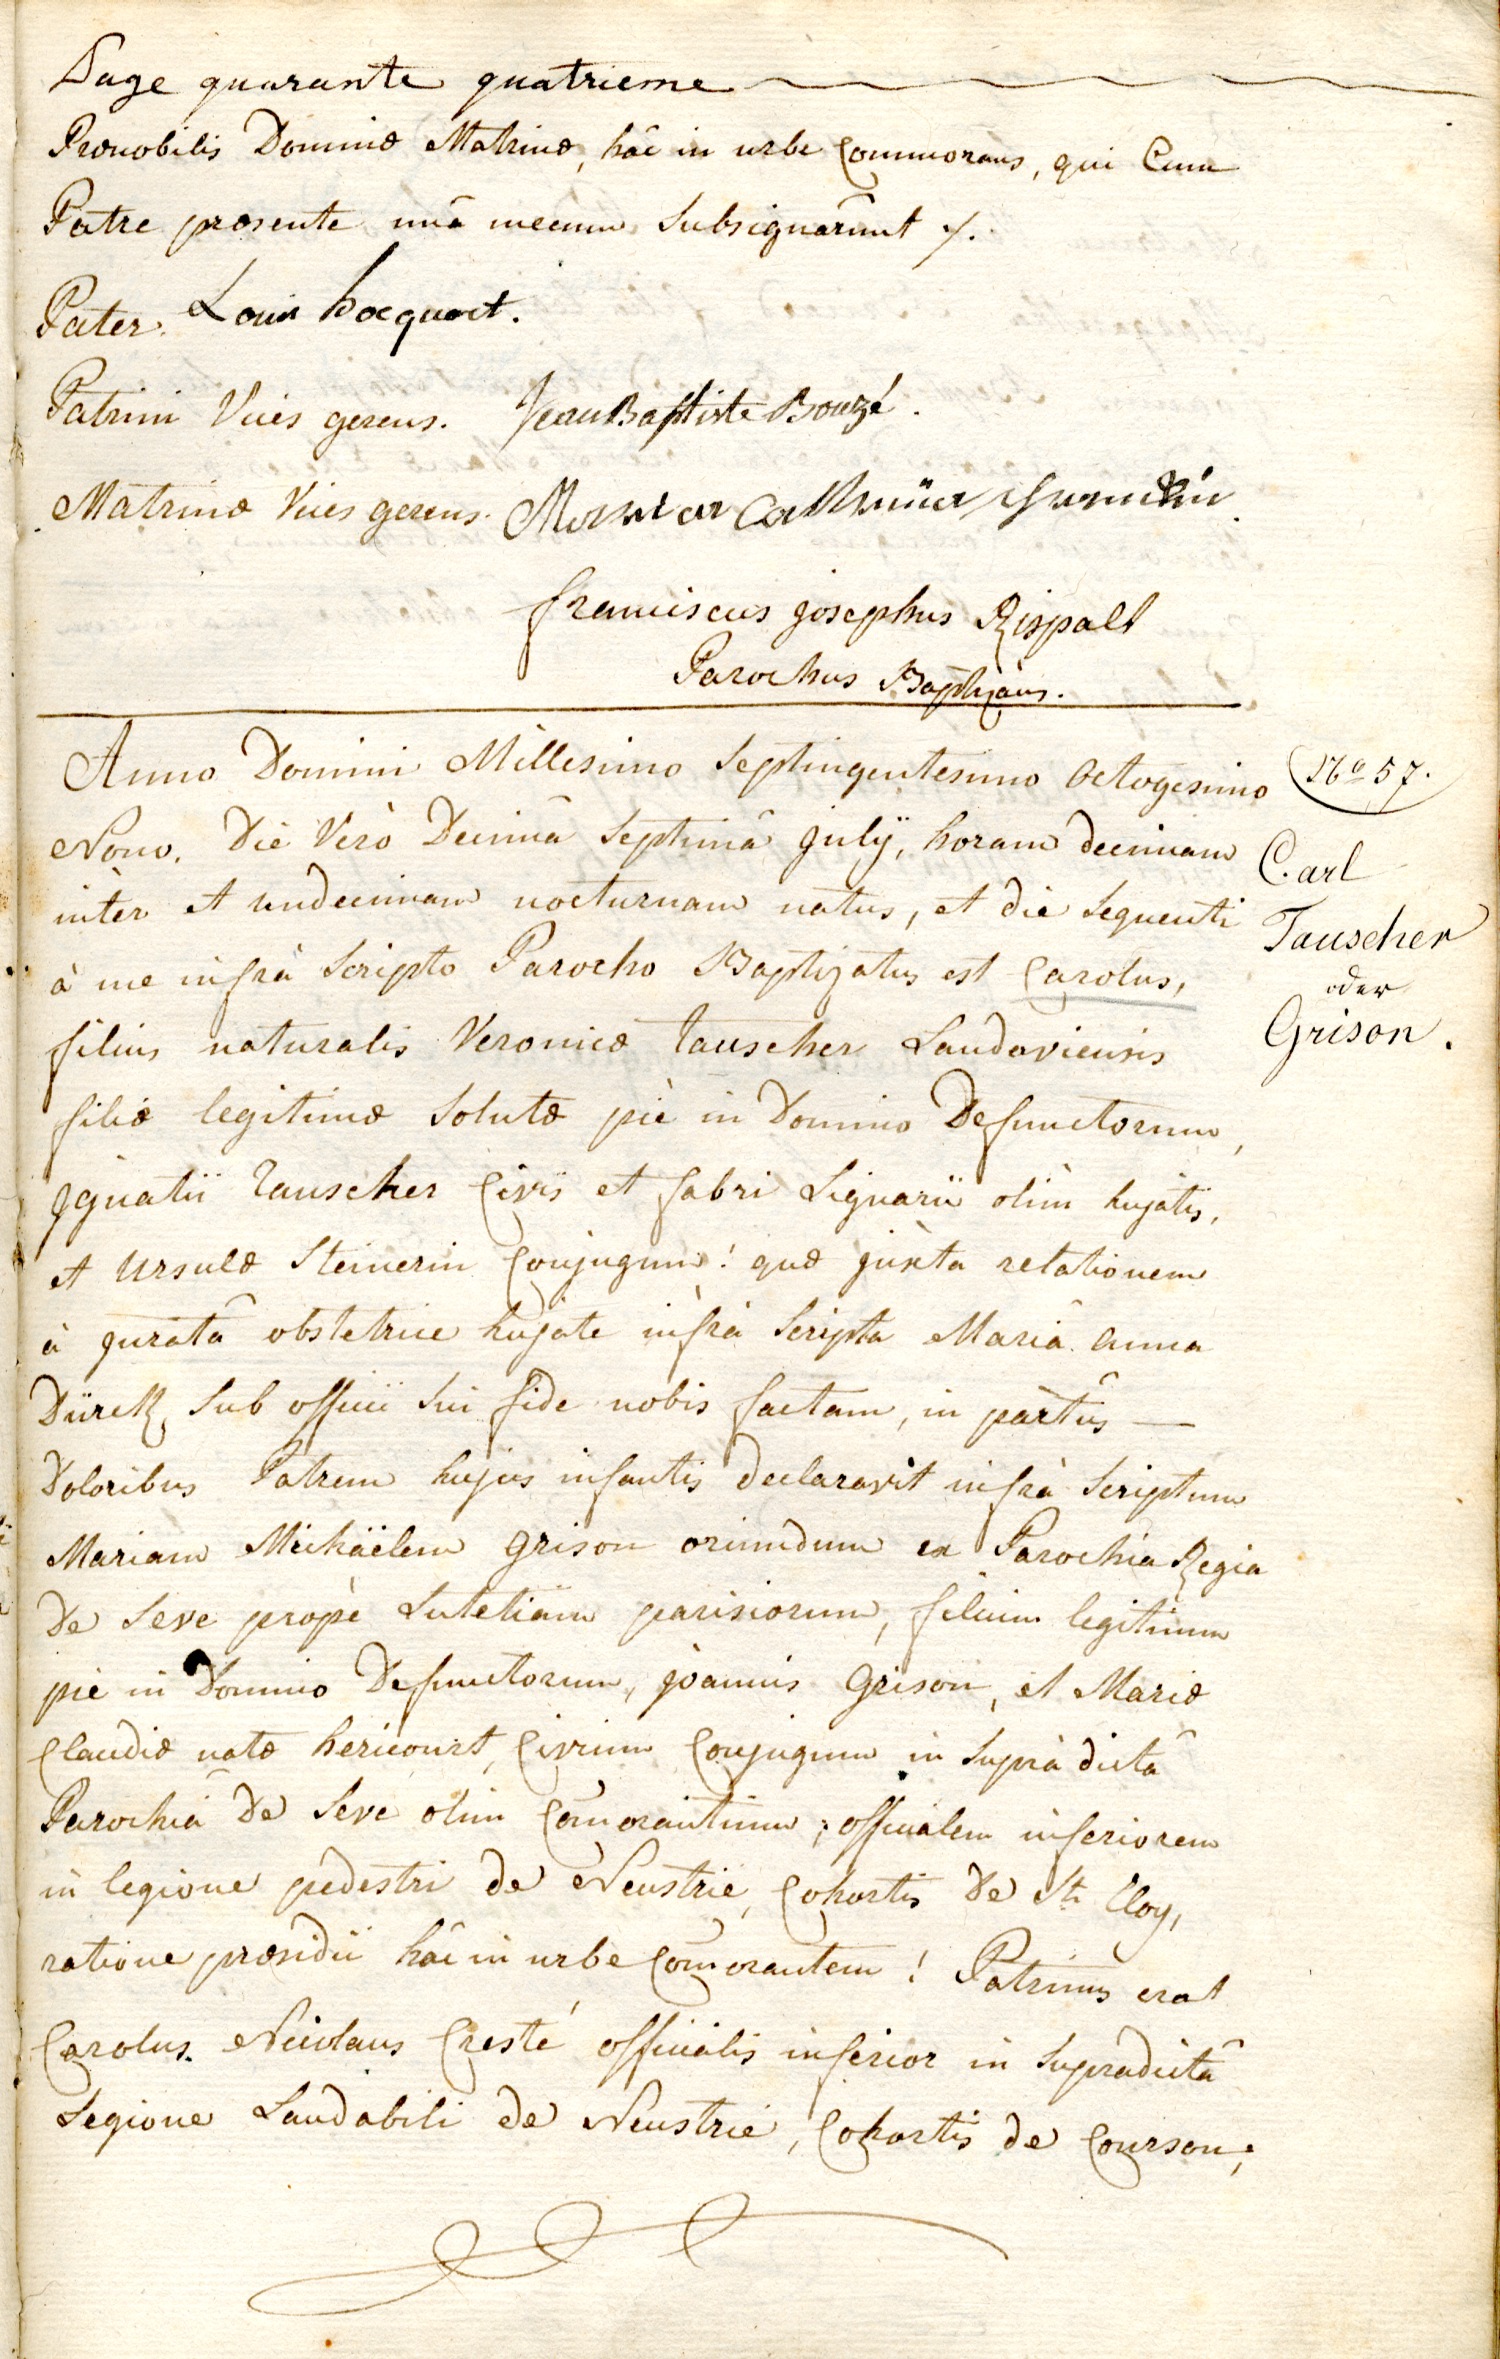 Page quarante quatrieme
Prænobilis Dominæ Matrinæ, hâc in urbe Commorans, qui Cum
Patre præsente unâ mecum Subsignarûnt ./.
Pater. Louis hocquart.
Patrini Vices gerens. Jean Baptiste Bouzé.
Matrinæ Vices gerens. Catharina
franciscus josephus Rispalt
Parochus Baptizans.
Anno Domini Millesimo Septingentesimo Octogesimo
Nono. Die Verò Decimâ Septimâ july, horam decimam
inter et undecimam nocturnam natus, et die Sequenti
à me infrà Scripto Parocho Baptizatus est Carolus,
filius naturalis Veronicæ Tauscher Landaviensis
filiæ legitimæ Solutæ piè in Domino Defunctorum,
jgnatii Tauscher Civis et fabri Lignarii olim hujatis,
et Ursulæ Steinerin Conjugum! quæ juxta relationem
à juratâ obstetrice hujate infrà Scripta Mariâ Anna
Dürck, Sub officii Sui fide nobis factam, in partûs —
Doloribus Patrem hujus infantis declaravit infrà Scriptum
Mariam Michaëlem Grison oriundum ex Parochia Regia
De Seve propè Lutetiam parisiorum, filium legitimum
piè in Domino Defunctorum, joannis Grison, et Mariæ
Claudiæ natæ hericourt, Civium Conjugum in Suprà dictâ
Parochiâ De Seve olim Com̄orantium; officialem inferiorem
in legione pedestri de Neustrie, Cohortis De St. Cloy,
ratione præsidii hâc in urbe Com̄orantem! Patrinus erat
Carolus Nicolaus Cresté officialis inferior in Supradictâ
Legione Laudabili de Neustrie, Cohortis de Courson;
No 57.
Carl
Tauscher
oder
Grison.